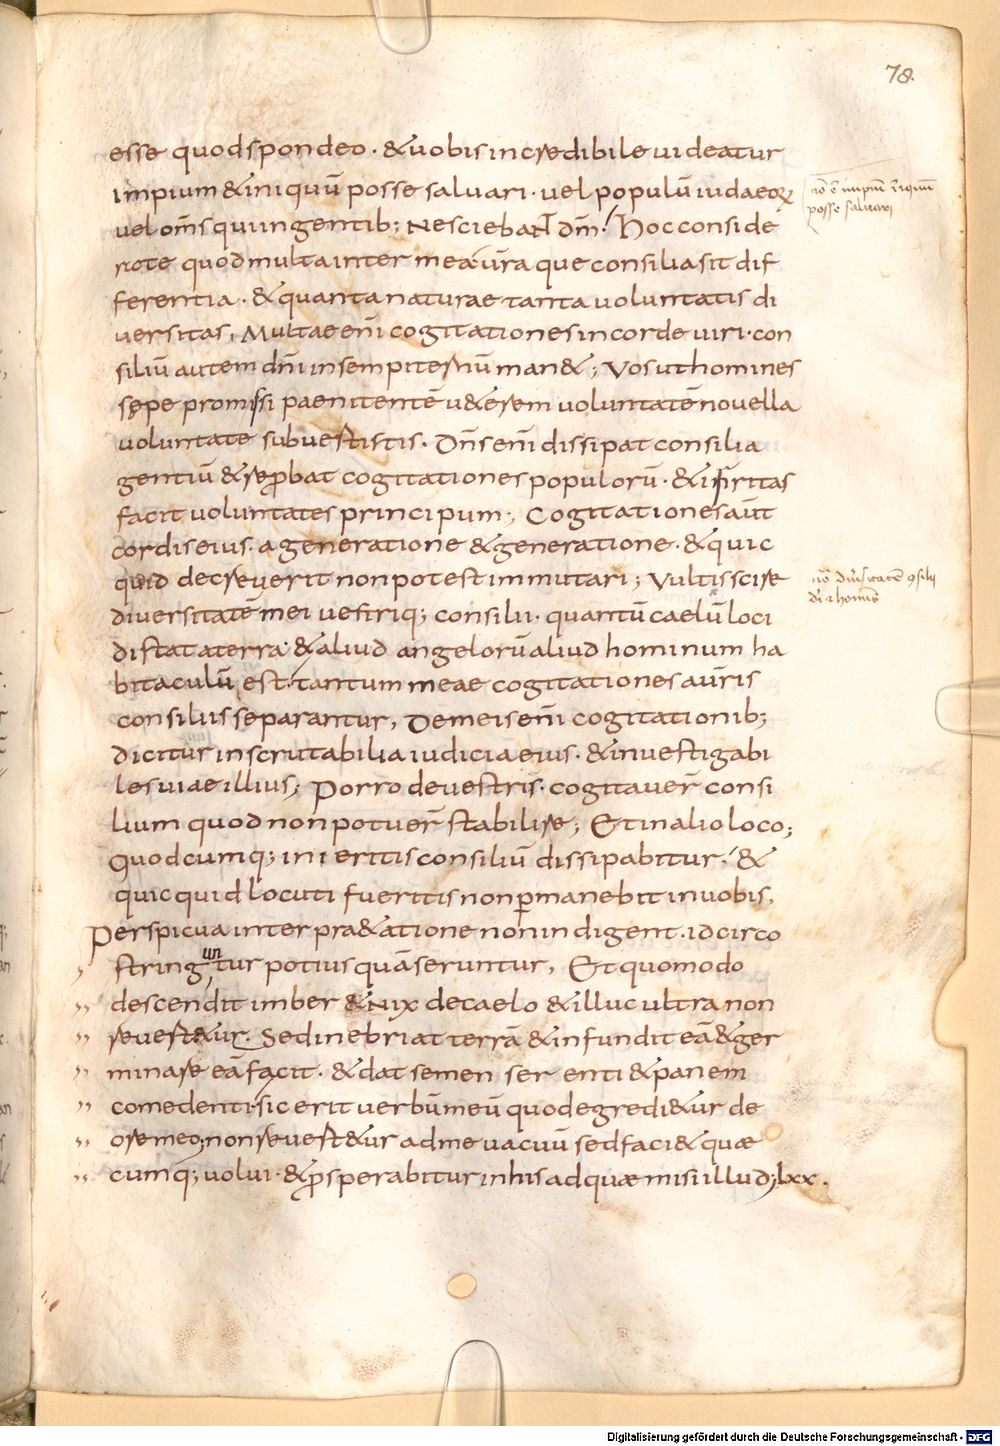 78.
esse quod spondeo · & uobis incredibile uideatur
impium & iniquū posse saluari · uel populū iudaeoꝝ
uel om̄s qui in gentib; Nesciebant dm̄! Hoc conside
rate quod multa inter mea ur̄aque consilia sit dif
ferentia · & quanta naturae tanta uoluntatis di
uersitas, Multae eni̅ cogitationes in corde uiri · con
siliū autem dn̄i in sempiternū man&; Vos ut homines
sępe promissi paenitentē u&erem uoluntatē nouella
uoluntate subuertistis. Dn̄s eni̅ dissipat consilia
gentiū & reꝓbat cogitationes populorū · & irritas
facit uoluntates principum; Cogitationes aut̄
cordis eius · a generatione & generatione · & quic
quid decreuerit non potest immutari; Vultis scire
diuersitatē mei uestriq; consilii · quantū caelū loci
distat a terra · & aliud angelorū aliud hominum ha
bitaculū est · tantum meae cogitationes a ur̄is
consiliis separantur, De meis eni̅ cogitationib;
dicitur inscrutabilia iudicia eius · & inuestigabi
les uiae illius; Porro de uestris · cogitauer̄ consi
lium quod non potuer̄ stabilire; Et in alio loco;
Quodcumq; inieritis consiliū dissipabitur · &
quicquid locuti fueritis non ꝑmanebit in uobis,
Perspicua interpra&atione non indigent · idcirco
stringuntur potius quā seruntur, Et quomodo
descendit imber & Nix de caelo & illuc ultra non
reuert&ur · Sed inebriat terrā & infundit eā & ger
minare eā facit · & dat semen serenti & panem
comedenti · sic erit uerbū meū quod egredi&ur de
ore meo; non reuert&ur ad me uacuū sed faci& quæ
cumq; uolui · & ꝓsperabitur in his ad quæ misi illud; lxx .
posse saluari
Digitalisierung gefördert durch die Deutsche Forschungsgemeinschaft - DFG